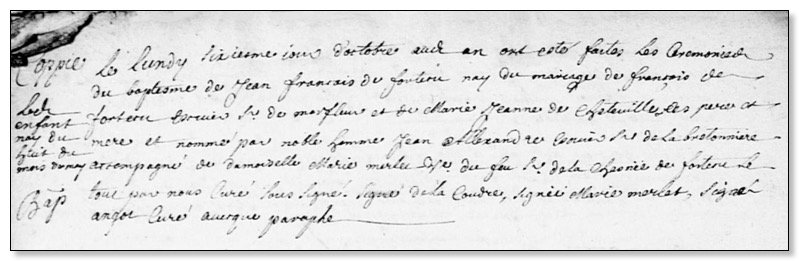 Coppie
Led
enfant
nay du
huit du
mois de may
Bap
Le Lundy sixiesme jour d'octobre aud an ont esté faites les Ceremonies
du baptesme de Jean francois de fortecu nay du mariage de françois de
fortecu Escuier Sr de marfleur et de Marie Jeanne de Choteville, ses pere et
mere et nommé par noble homme Jean Allexandre Escuier Sr de la bretonniere
accompagné de damoiselle Marie merlet du feu Sr de la Chesnée de fortecu Le
tout par nous Curé sous signé. signé de la Coudre, signée Marie merlet, signé
angot Curé avecque paraphe